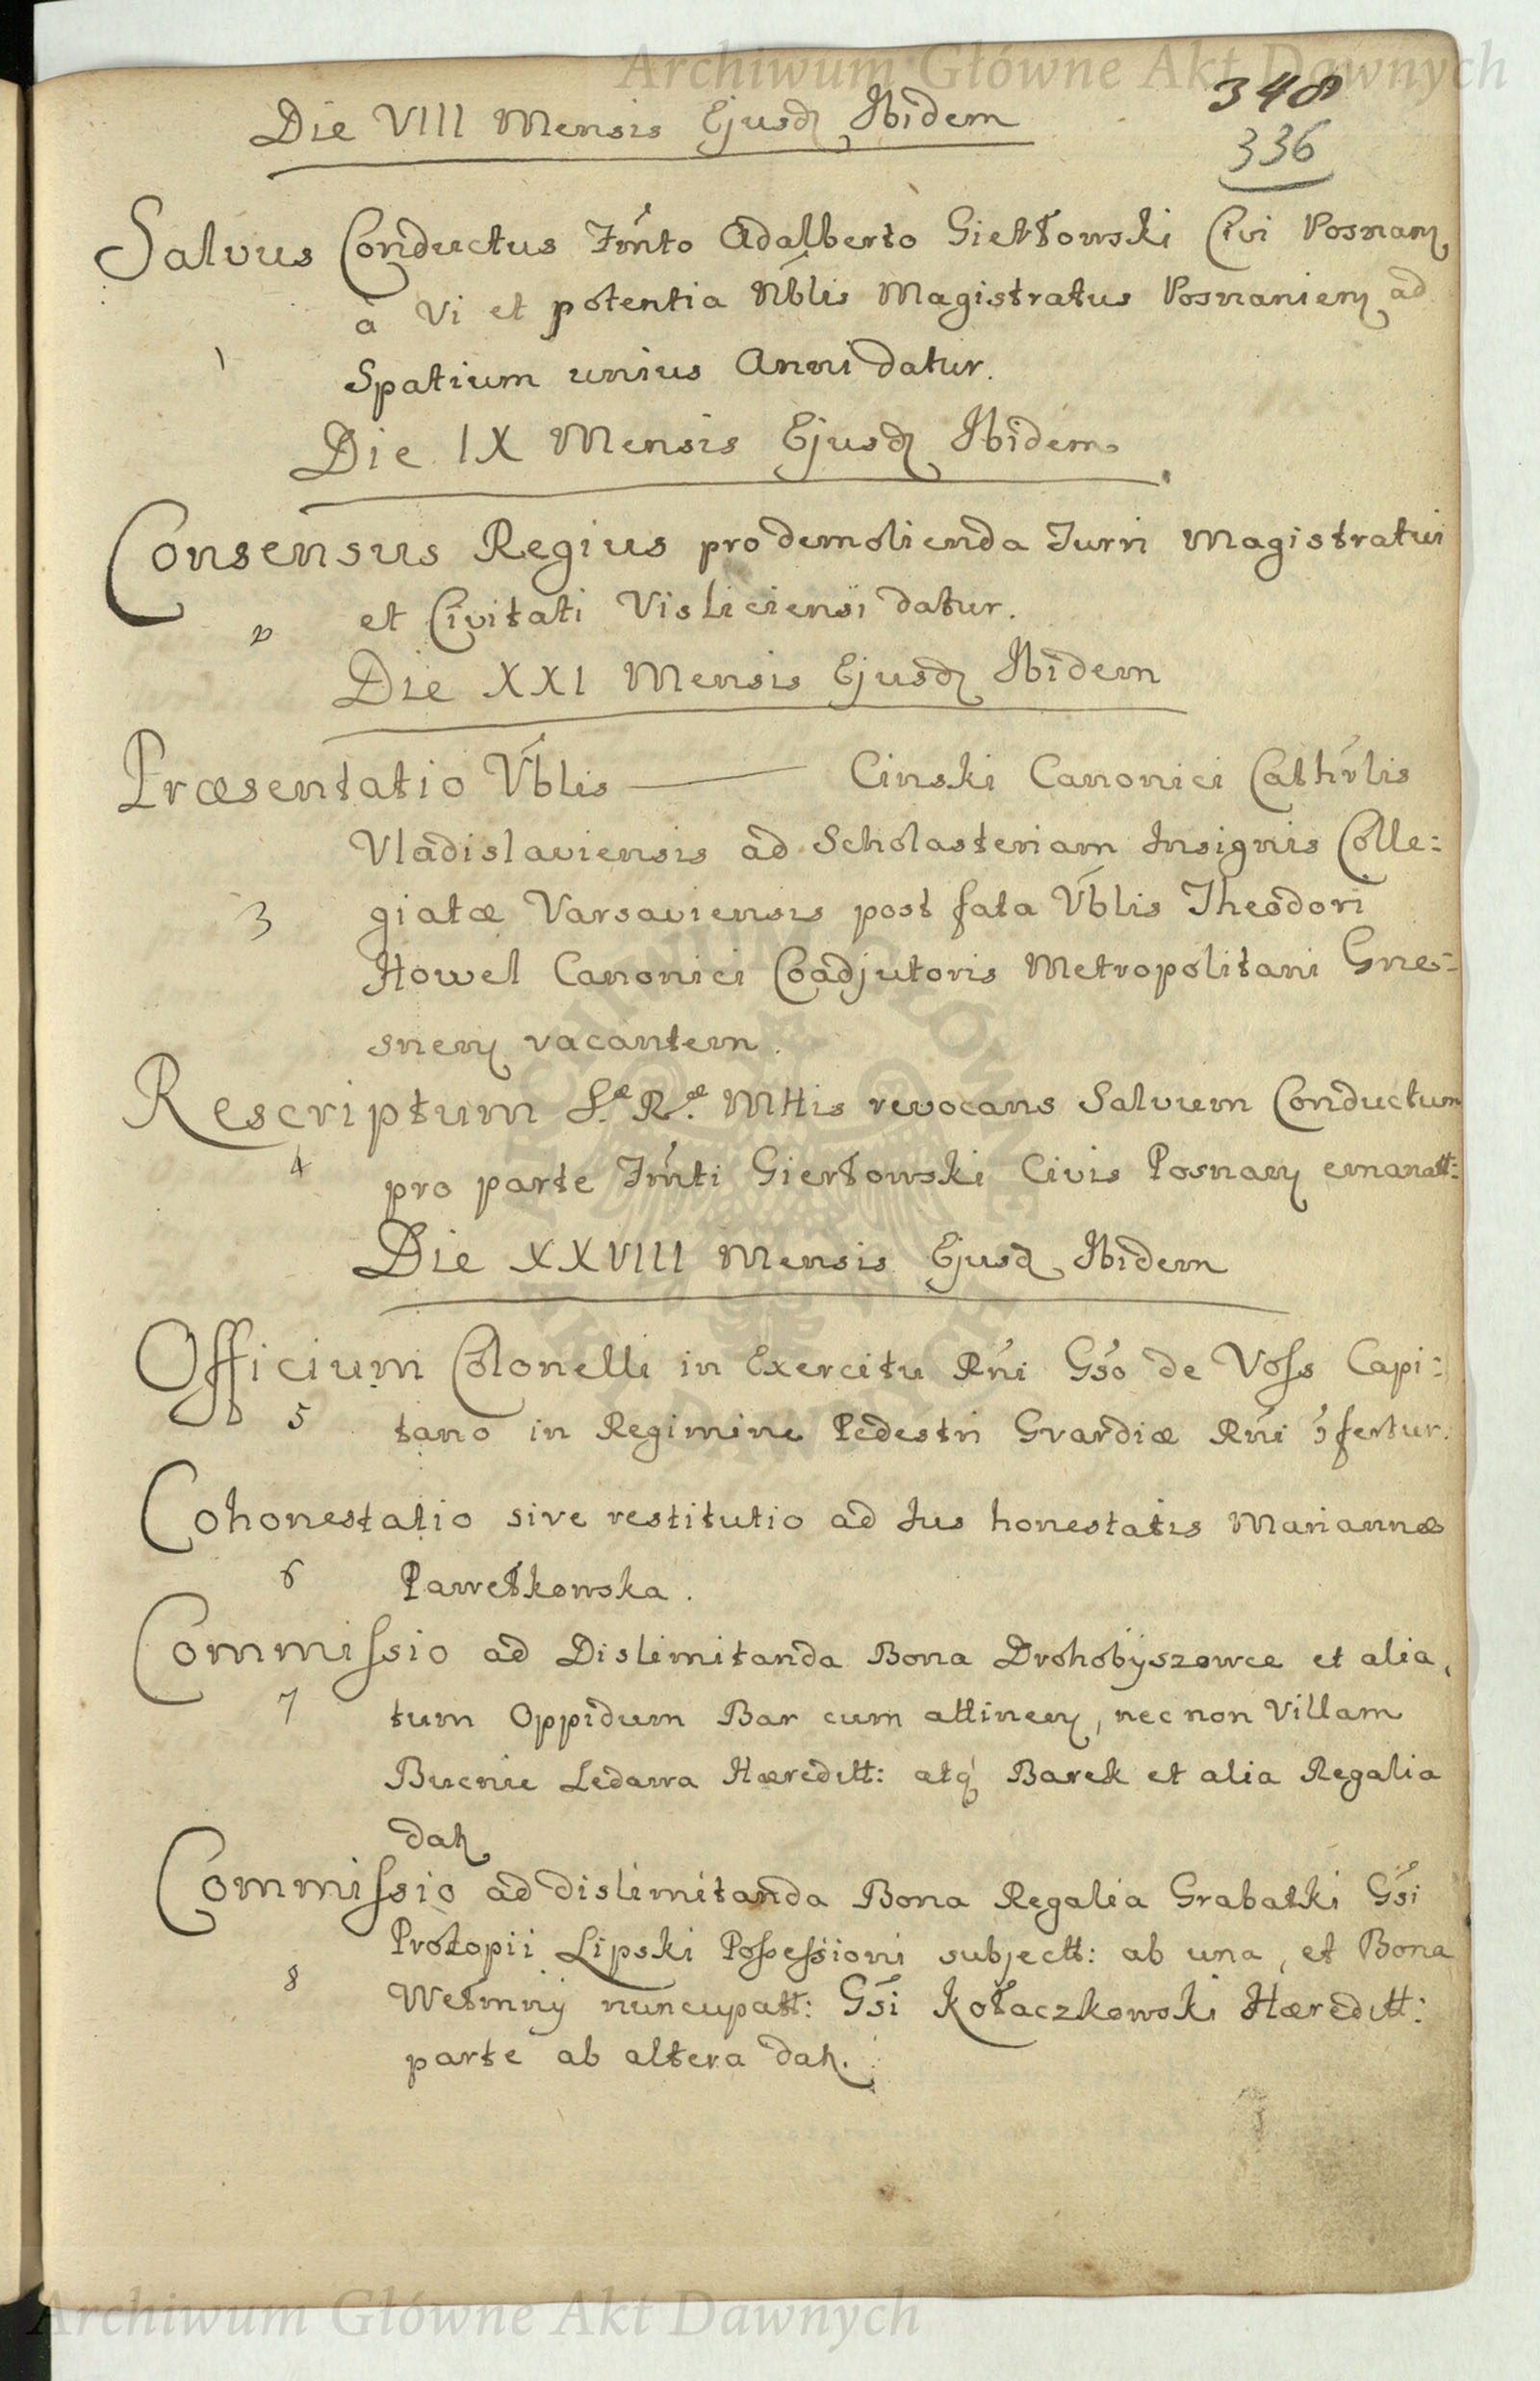 Archiwum Główne Akt Dawnych
348
336
Die VIII Mensis Ejusd Ibidem
Salvus Conductus Fmto Adalberto Giełtowski Civi Posnan
a Vi et potentia Nblis Magistratus Posnanien ad
1
Spatium unius Anni datur.
Die IX Mensis Ejusd Ibidem
Consensus Regius pro demolienda Turri Magistratui
2
et Civitati Visliciensi datur.
Die XXI Mensis Ejusd Ibidem
Præsentatio Vblis — Cinski Canonici Cathrlis
Vladislaviensis ad Scholasteriam Insignis Colle:
3
giatæ Varsaviensis post fata Vblis Theodori
Howel Canonici Coadjutoris Metropolitani Gne=
snen vacantem.
Rescriptum S.æ R.æ Mttis revocans Salvum Conductum
4
pro parte Fmti Giertowski Civis Posnan emanatt:
Die XXVIII Mensis Ejusd Ibidem
Officium Colonelli in Exercitu Rni Gso de Voss Capi:
5
tano in Regimine Pedestri Gvardiæ Rni 9fertur.
Cohonestatio sive restitutio ad Jus honestatis Mariannæ
6
Pawełkowska.
Commissio ad Dislimitanda Bona Drohobyszowce et alia,
7
tum Oppidum Bar cum attinen, nec non Villam
Bucnie Ledawa Hæreditt: atq Barek et alia Regalia
dat
Commissio ad dislimitanda Bona Regalia Grabatki Gsi
Protopii Lipski Possessioni subjectt: ab una, et Bona
8
Wełmny nuncupatt: Gsi Kołaczkowski Hæreditt:
parte ab altera dat.
Archiwum Główne Akt Dawnych